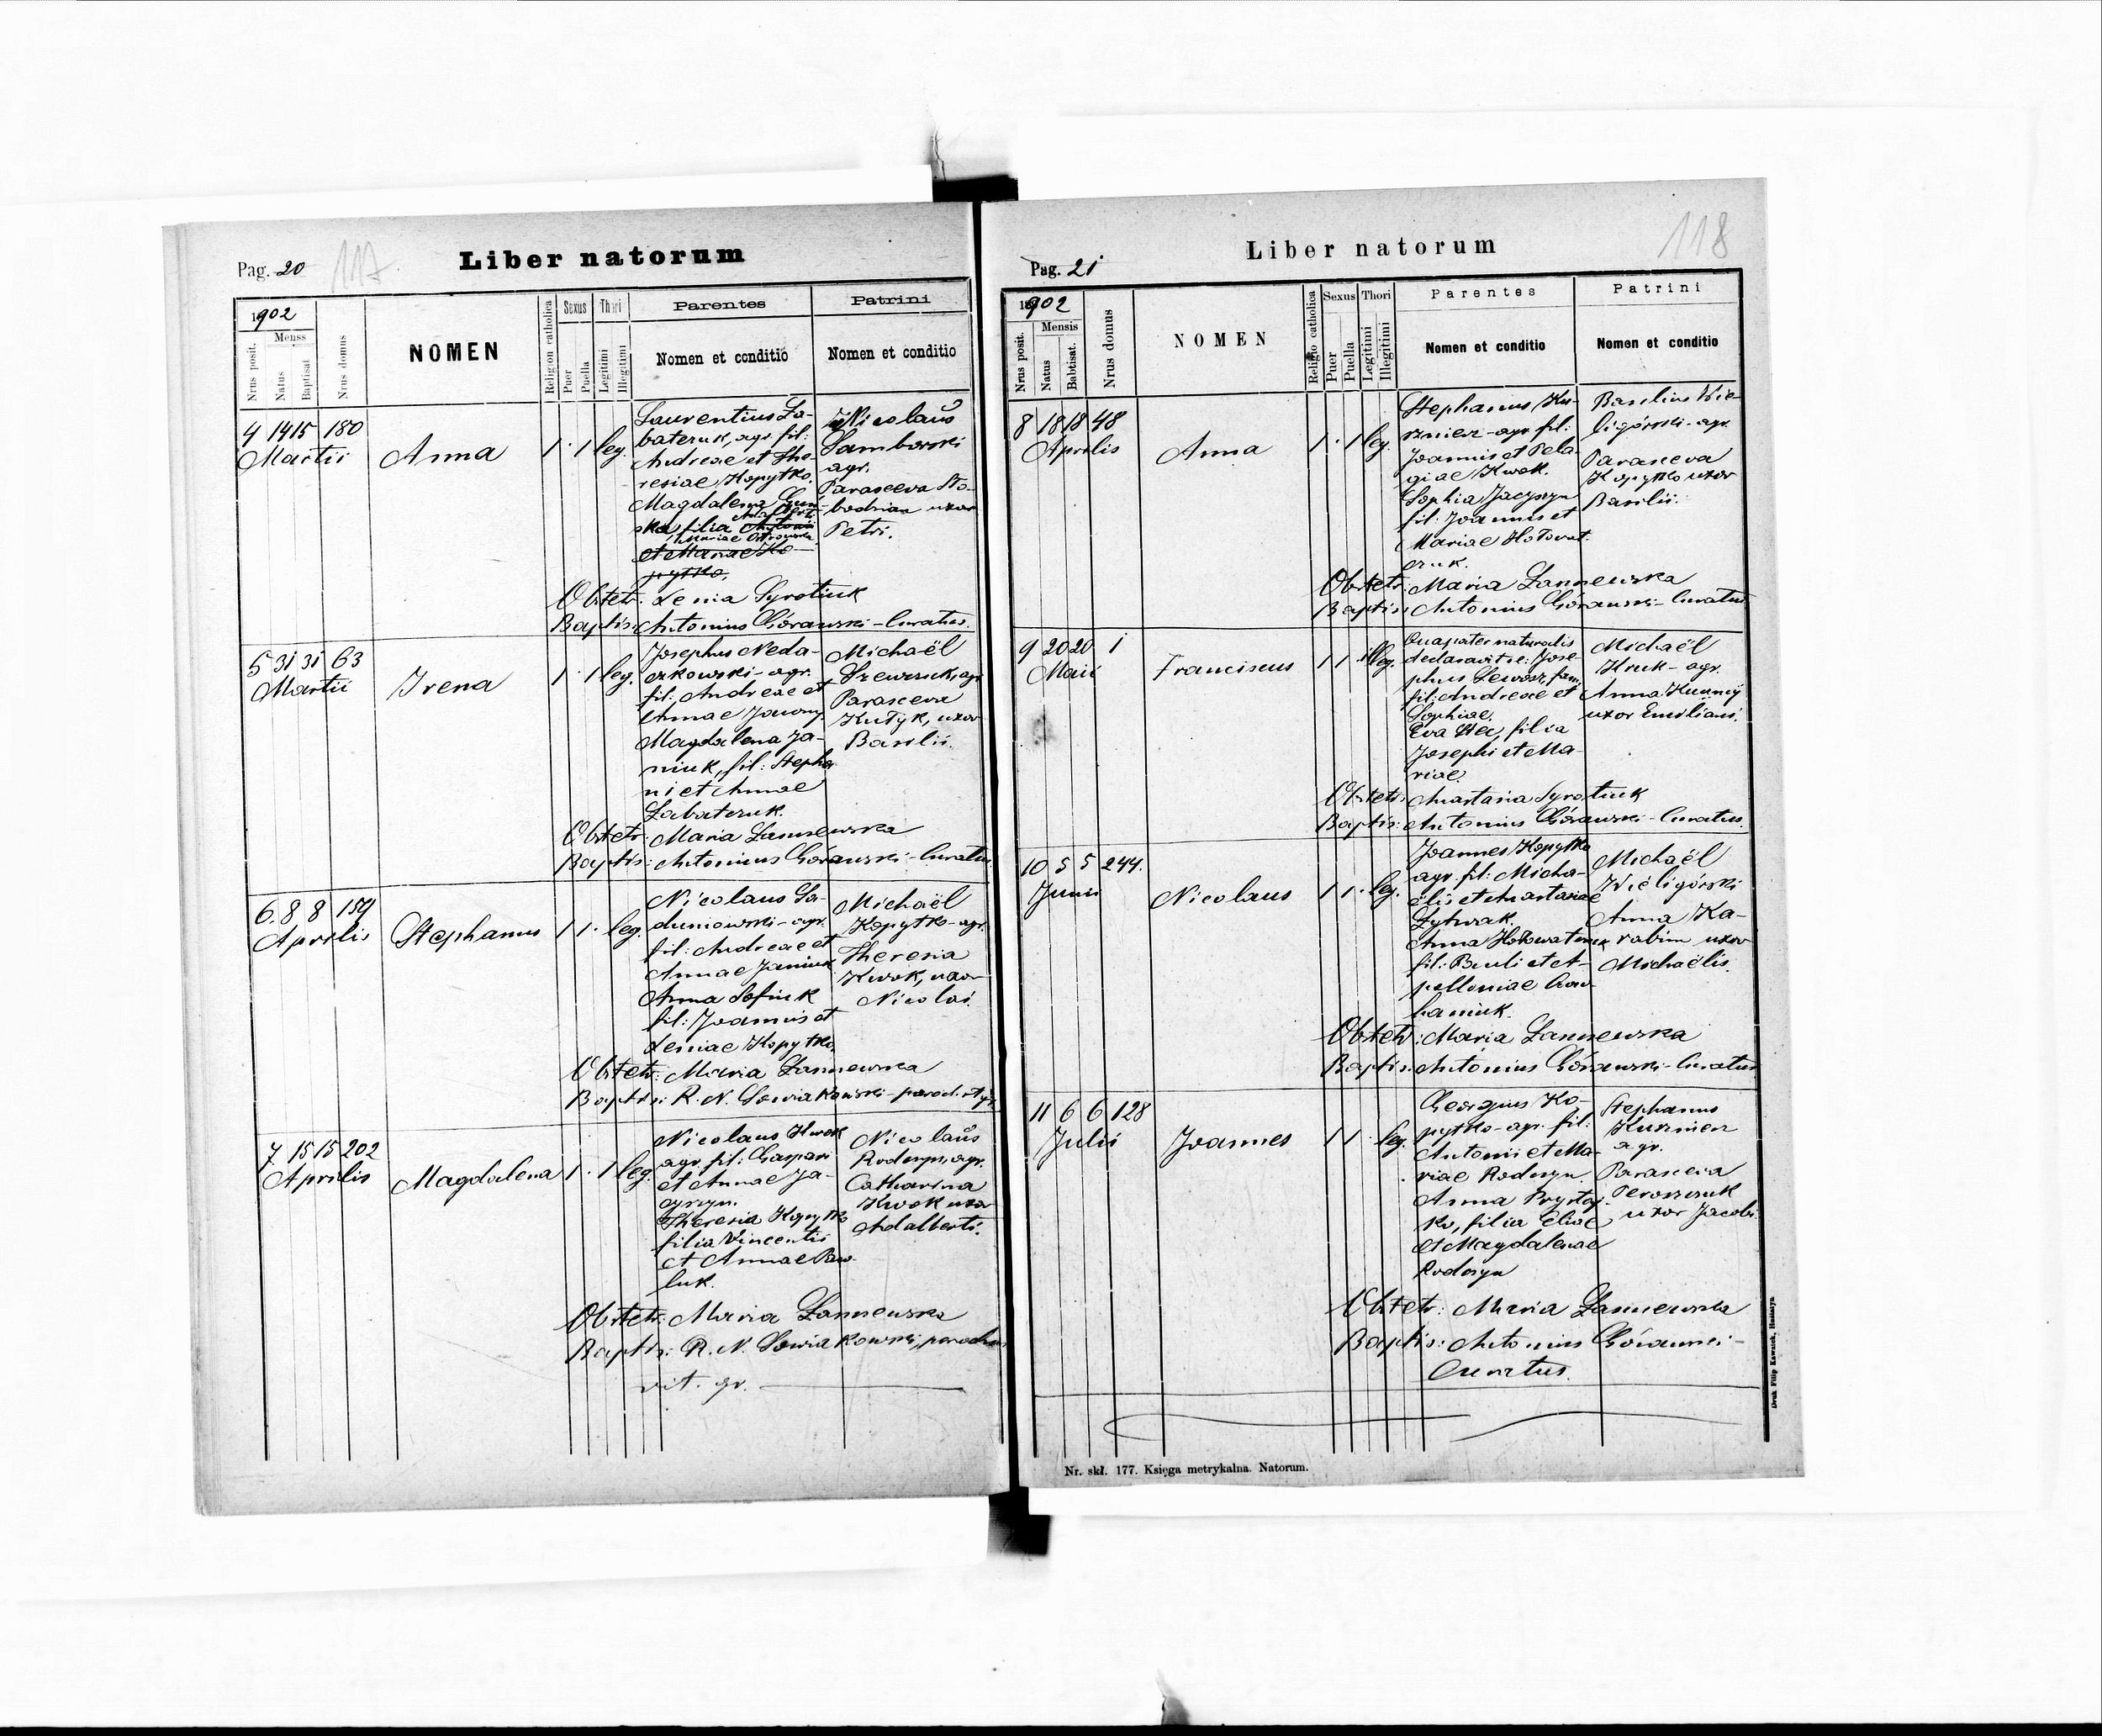 Pag. 20
117
Liber natorum
1902
Menss
Nrus posit.
Natus
Baptisat
Nrus domus
NOMEN
Religion catholica
Sexus
Puer
Puella
Thori
Legitimi
Illegitimi
Parentes
Nomen et conditio
Patrini
Nomen et conditio
4 14 15 180
Martii
Anna
1 · 1 leg.
Laurentius Za-
bateruk, agr. fil:
Andreae et The-
resiae Kopytko.
Magdalena
ska, filia Antonii
Mariae Ostrowska
et Mariae Ko-
pytko.
Nicolaus
Samborski
agr.
Parasceva Sto-
bodzian uxor
Petri.
Obstetr. Xenia Syrotiuk
Baptis: Antonius Górawski - Curatus.
5 31 31 63
Martii
Irena
1 · 1 leg.
Josephus Neda-
czkowski - agr.
fil: Andreae et
Annae
Magdalena Ja-
niuk, fil: Stepha
ni et Annae
Zabateruk.
Michaël
Szewczuk, agr
Parasceva
Kutyk, uxor
Basilii.
Obstetr. Maria Zannewska
Baptis: Antonius Górawski - Curatus
6. 8 8 159
Aprilis
Stephanus
1 1 · leg.
Nicolaus Sa-
duniowski - agr.
fil: Andreae et
Annae Janiuk
Anna Safiuk
fil: Joannis et
Xeniae Kopytko.
Michaël
Kopytko - agr.
Theresia
Kwok, uxor
Nicolai.
Obstetr: Maria Zannewska
Baptis: R. N. Sowiakowski - paroch.
7 15 15 202
Aprilis
Magdalena
1 · 1 leg.
Nicolaus Kwok
agr. fil: Caspari
et Annae Ja-
cyszyn.
Theresia Kopytko
filia Vincentii
et Annae Paw-
luk.
Nicolaus
Rodozyn, agr.
Catharina
Kwok uxor
Adalberti.
Obstetr: Maria Zannewska
Baptis: R. N. Sowiakowski, parochus
rit. gr.
Pag. 21
118
Liber natorum
1902
Mensis
Nrus posit.
Natus
Babtisat.
Nrus domus
NOMEN
Religio catholica
Sexus
Puer
Puella
Thori
Legitimi
Illegitimi
Parentes
Nomen et conditio
Patrini
Nomen et conditio
8 18 18 48
Aprilis
Anna
1 · 1 leg.
Stephanus Ku-
zmier - agr. fil:
Joannis et Pela-
giae Kwok.
Sophia Jacyszyn
fil: Joannis et
Mariae Hołowat
czuk.
Basilius Wie-
ligórski - agr.
Parasceva
Kopytko uxor
Basilii.
Obstetr: Maria Zannewska
Baptis: Antonius Górawski - Curatus
9 20 20 1
Maii
Franciscus
1 1 · illeg.
Qua pater naturalis
declaravit se: Jose-
phus Lewosz, fam.
fil: Andreae et
Sophiae.
Eva Stec, filia
Josephi et Ma-
riae.
Michaël
Hruk - agr.
Anna
uxor Emiliani.
Obstetr: Anastasia Syrotiuk
Baptis: Antonius Górawski - Curatus.
10 5 5 244.
Junii
Nicolaus
1 1 · leg.
Joannes Kopytko
agr. fil: Micha-
ëlis et Anastasiae
Zytwak.
Anna Hołowateruk
fil: Pauli et A-
polloniae Hraw-
haniuk.
Michaël
Wieligórski
Anna Ka-
rabin uxor
Michaëlis.
Obstetr: Maria Zannewska
Baptis: Antonius Górawski - Curatus
11 6 6 128
Julii
Joannes
1 1 · leg.
Georgius Ko-
pytko - agr. fil:
Antonii et Ma-
riae Rodozyn.
Anna Prystaj-
ko, filia Eliae
et Magdalenae
Rodozyn
Stephanus
Kuzmier
agr.
Parasceva
Peroszczuk
uxor Jacobi.
Obstetr: Maria Zannewska
Baptis: Antonius Górawski -
Curatus.
Nr. skł. 177. Księga metrykalna. Natorum.
Druk Filip Kawalek, Husiatyn